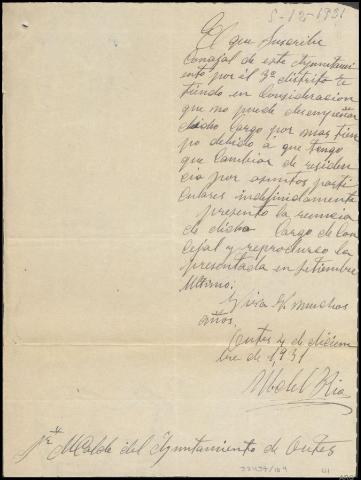 5-12-1931
El que suscribe
Concejal de este Ayuntami
ento por el 3º distrito te
niendo en consideracion
que no puede desempeñar
dicho cargo por mas tiem
po debido á que tengo
que cambiar de residen
cia por asuntos parti
culares indefinidamente
presento la renuncia
de dicho cargo de Con
cejal y reproduzco la
presentada en setiembre
ultimo.
Viva V. muchos
años.
Outes 4 de diciem
bre de 1,931
Sr. Alcalde del Ayuntamiento de Outes